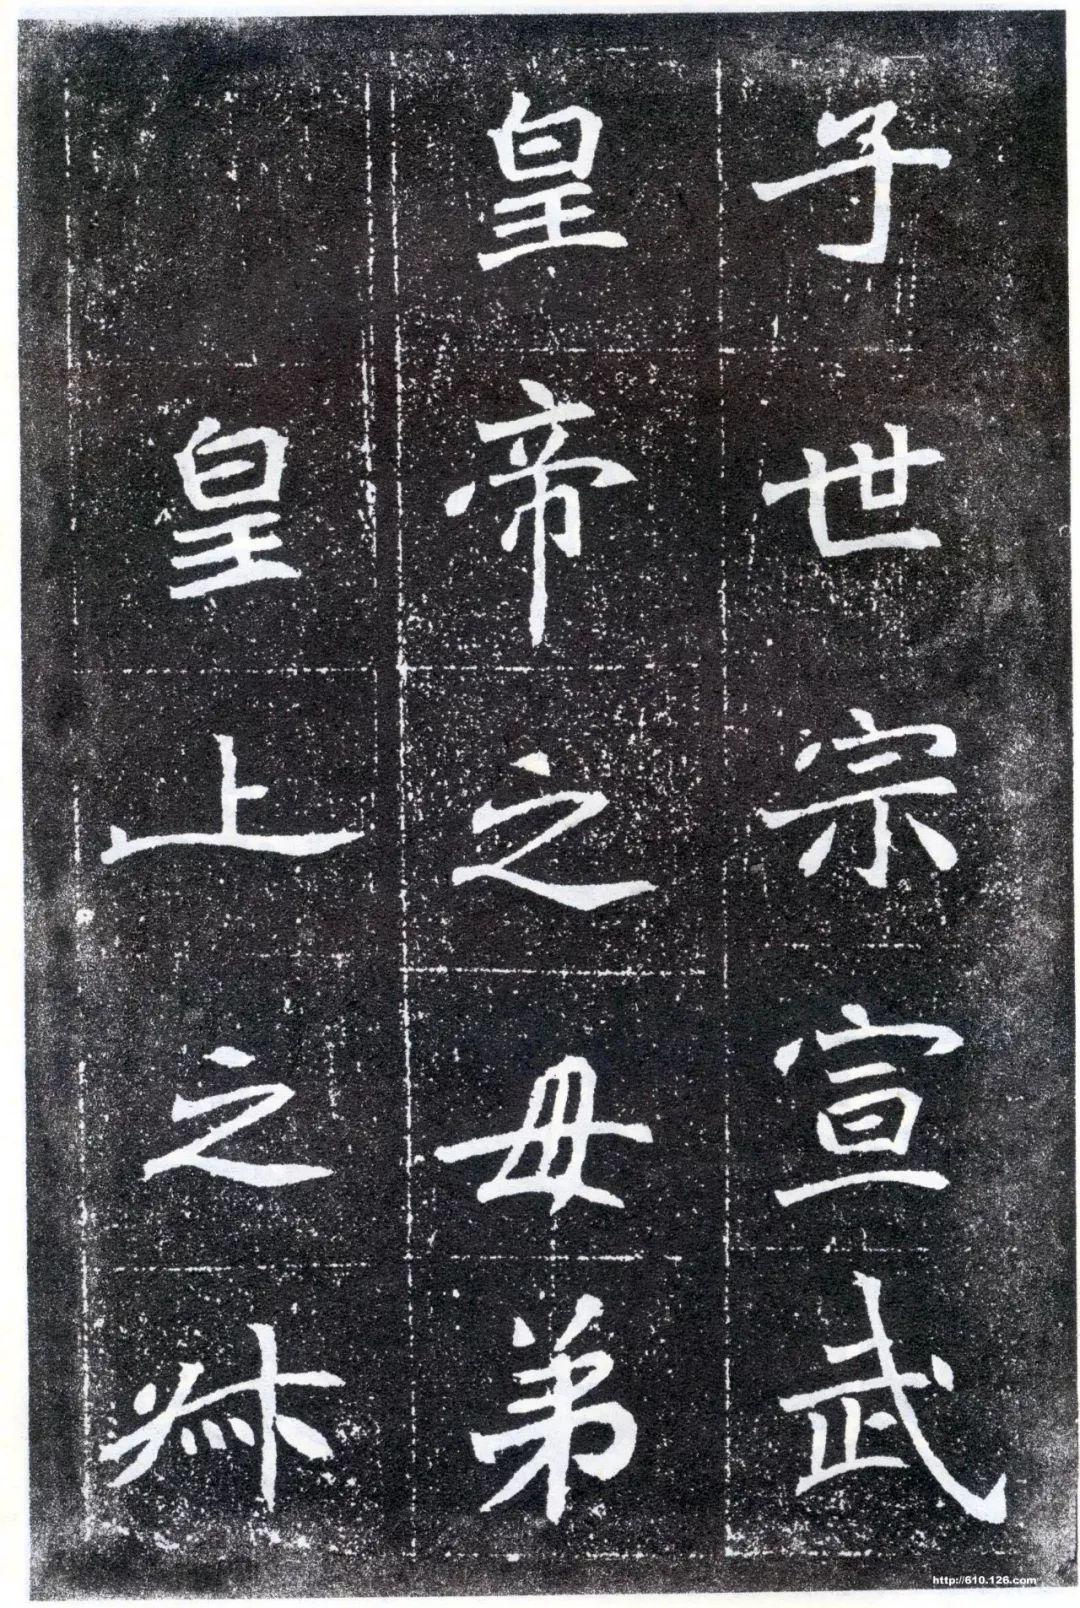 子世宗宣武
皇帝之母弟
皇上之叔
http://610.126.com